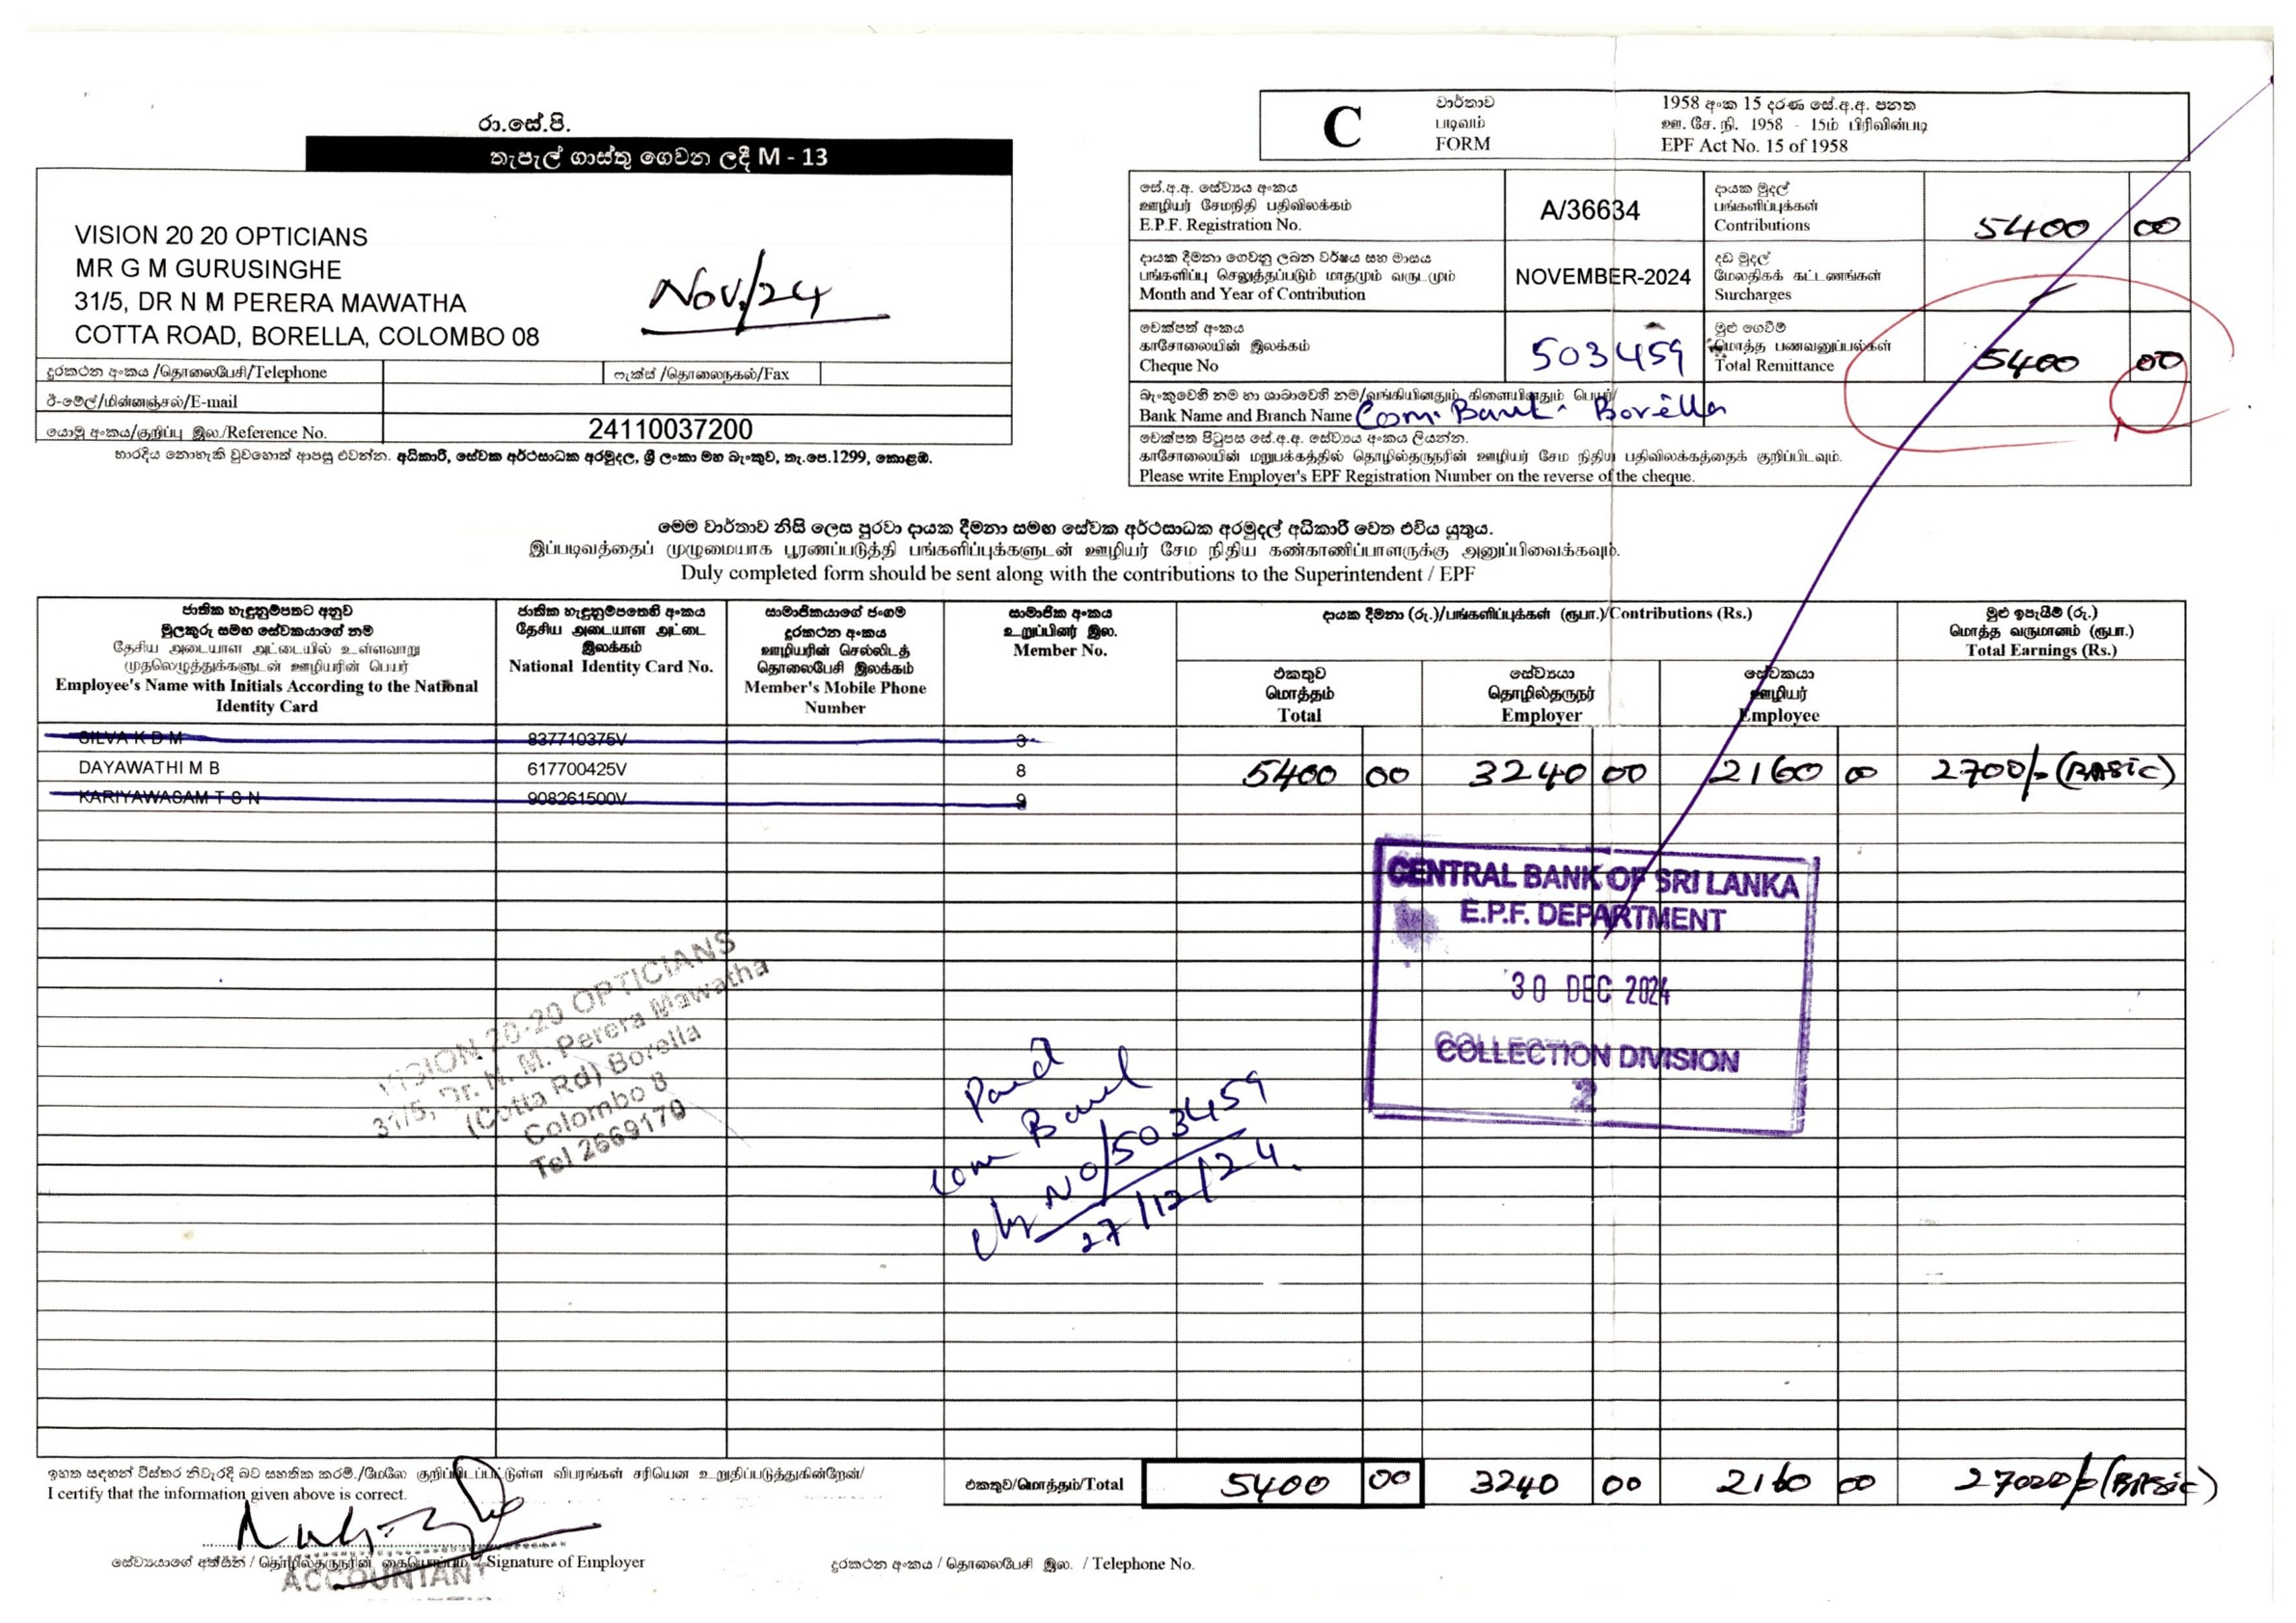 රා.සේ.පි.
තැපැල් ගාස්තු ගෙවන ලදී M - 13
VISION 20 20 OPTICIANS
MR G M GURUSINGHE
31/5, DR N M PERERA MAWATHA
COTTA ROAD, BORELLA, COLOMBO 08
Nov/24
දුරකථන අංකය /தொலைபேசி/Telephone
ෆැක්ස් /தொலைநகல்/Fax
ඊ-මේල්/மின்னஞ்சல்/E-mail
යොමු අංකය/குறிப்பு இல./Reference No. 24110037200
භාරදිය නොහැකි වුවහොත් ආපසු එවන්න. අධිකාරී, සේවක අර්ථසාධක අරමුදල, ශ්‍රී ලංකා මහ බැංකුව, තැ.පෙ.1299, කොළඹ.
C
වාර්තාව
படிவம்
FORM
1958 අංක 15 දරණ සේ.අ.අ. පනත
ஊ. சே. நி. 1958 - 15ம் பிரிவின்படி
EPF Act No. 15 of 1958
සේ.අ.අ. සේව්‍යය අංකය
ஊழியர் சேமநிதி பதிவிலக்கம்
E.P.F. Registration No.
A/36634
දායක මුදල්
பங்களிப்புக்கள்
Contributions
5400 00
දායක දීමනා ගෙවනු ලබන වර්ෂය සහ මාසය
பங்களிப்பு செலுத்தப்படும் மாதமும் வருடமும்
Month and Year of Contribution
NOVEMBER-2024
දඩ මුදල්
மேலதிகக் கட்டணங்கள்
Surcharges
චෙක්පත් අංකය
காசோலையின் இலக்கம்
Cheque No
503459
මුළු ගෙවීම්
மொத்த பணவனுப்பல்கள்
Total Remittance
5400 00
බැංකුවෙහි නම හා ශාඛාවෙහි නම/வங்கியினதும் கிளையினதும் பெயர்/
Bank Name and Branch Name Com. Bank. Borella
චෙක්පත පිටුපස සේ.අ.අ. සේව්‍යය අංකය ලියන්න.
காசோலையின் மறுபக்கத்தில் தொழில்தருநரின் ஊழியர் சேம நிதிய பதிவிலக்கத்தைக் குறிப்பிடவும்.
Please write Employer's EPF Registration Number on the reverse of the cheque.
මෙම වාර්තාව නිසි ලෙස පුරවා දායක දීමනා සමඟ සේවක අර්ථසාධක අරමුදල් අධිකාරී වෙත එවිය යුතුය.
இப்படிவத்தைப் முழுமையாக பூரணப்படுத்தி பங்களிப்புக்களுடன் ஊழியர் சேம நிதிய கண்காணிப்பாளருக்கு அனுப்பிவைக்கவும்.
Duly completed form should be sent along with the contributions to the Superintendent / EPF
ජාතික හැඳුනුම්පතට අනුව
මුලකුරු සමඟ සේවකයාගේ නම
தேசிய அடையாள அட்டையில் உள்ளவாறு
முதலெழுத்துக்களுடன் ஊழியரின் பெயர்
Employee's Name with Initials According to the National
Identity Card
ජාතික හැඳුනුම්පතෙහි අංකය
தேசிய அடையாள அட்டை
இலக்கம்
National Identity Card No.
සාමාජිකයාගේ ජංගම
දුරකථන අංකය
ஊழியரின் செல்லிடத்
தொலைபேசி இலக்கம்
Member's Mobile Phone
Number
සාමාජික අංකය
உறுப்பினர் இல.
Member No.
දායක දීමනා (රු.)/பங்களிப்புக்கள் (ரூபா.)/Contributions (Rs.)
එකතුව
மொத்தம்
Total
සේව්‍යයා
தொழில்தருநர்
Employer
සේවකයා
ஊழியர்
Employee
මුළු ඉපැයීම් (රු.)
மொத்த வருமானம் (ரூபா.)
Total Earnings (Rs.)
SILVA K D M 837710375V 3
DAYAWATHI M B 617700425V 8 5400 00 3240 00 2160 00 2700/- (BASIC)
KARIYAWASAM T S N 908261500V 9
CENTRAL BANK OF SRI LANKA
E.P.F. DEPARTMENT
30 DEC 2024
COLLECTION DIVISION
2
VISION 20-20 OPTICIANS
31/5, Dr. N. M. Perera Mawatha
(Cotta Rd) Borella
Colombo 8
Tel 2669170
Paid
Com Bank
Ch NO/503459
27/12/24.
ඉහත සඳහන් විස්තර නිවැරදි බව සහතික කරමි./மேலே குறிப்பிடப்பட்டுள்ள விபரங்கள் சரியென உறுதிப்படுத்துகின்றேன்/
I certify that the information given above is correct.
එකතුව/மொத்தம்/Total 5400 00 3240 00 2160 00 (BASIC)
සේව්‍යයාගේ අත්සන / தொழில்தருநரின் கையொப்பம் / Signature of Employer
ACCOUNTANT
දුරකථන අංකය / தொலைபேசி இல. / Telephone No.